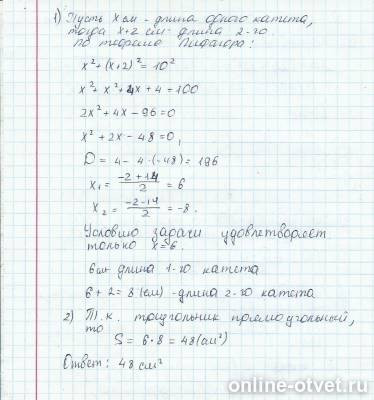 1) Пусть x см - длина одного катета,
тогда x+2 см - длина 2-го.
По теореме Пифагора:
x² + (x+2)² = 10²
x² + x² + 4x + 4 = 100
2x² + 4x - 96 = 0
x² + 2x - 48 = 0,
D = 4 - 4·(-48) = 196
x₁ = (-2+14)/2 = 6
x₂ = (-2-14)/2 = -8.
Условию задачи удовлетворяет
только x=6.
6 см - длина 1-го катета
6 + 2 = 8 (см) - длина 2-го катета
2) Т.к. треугольник прямоугольный,
то
S = 6·8 = 48 (см²)
Ответ: 48 см²
online-otvet.ru